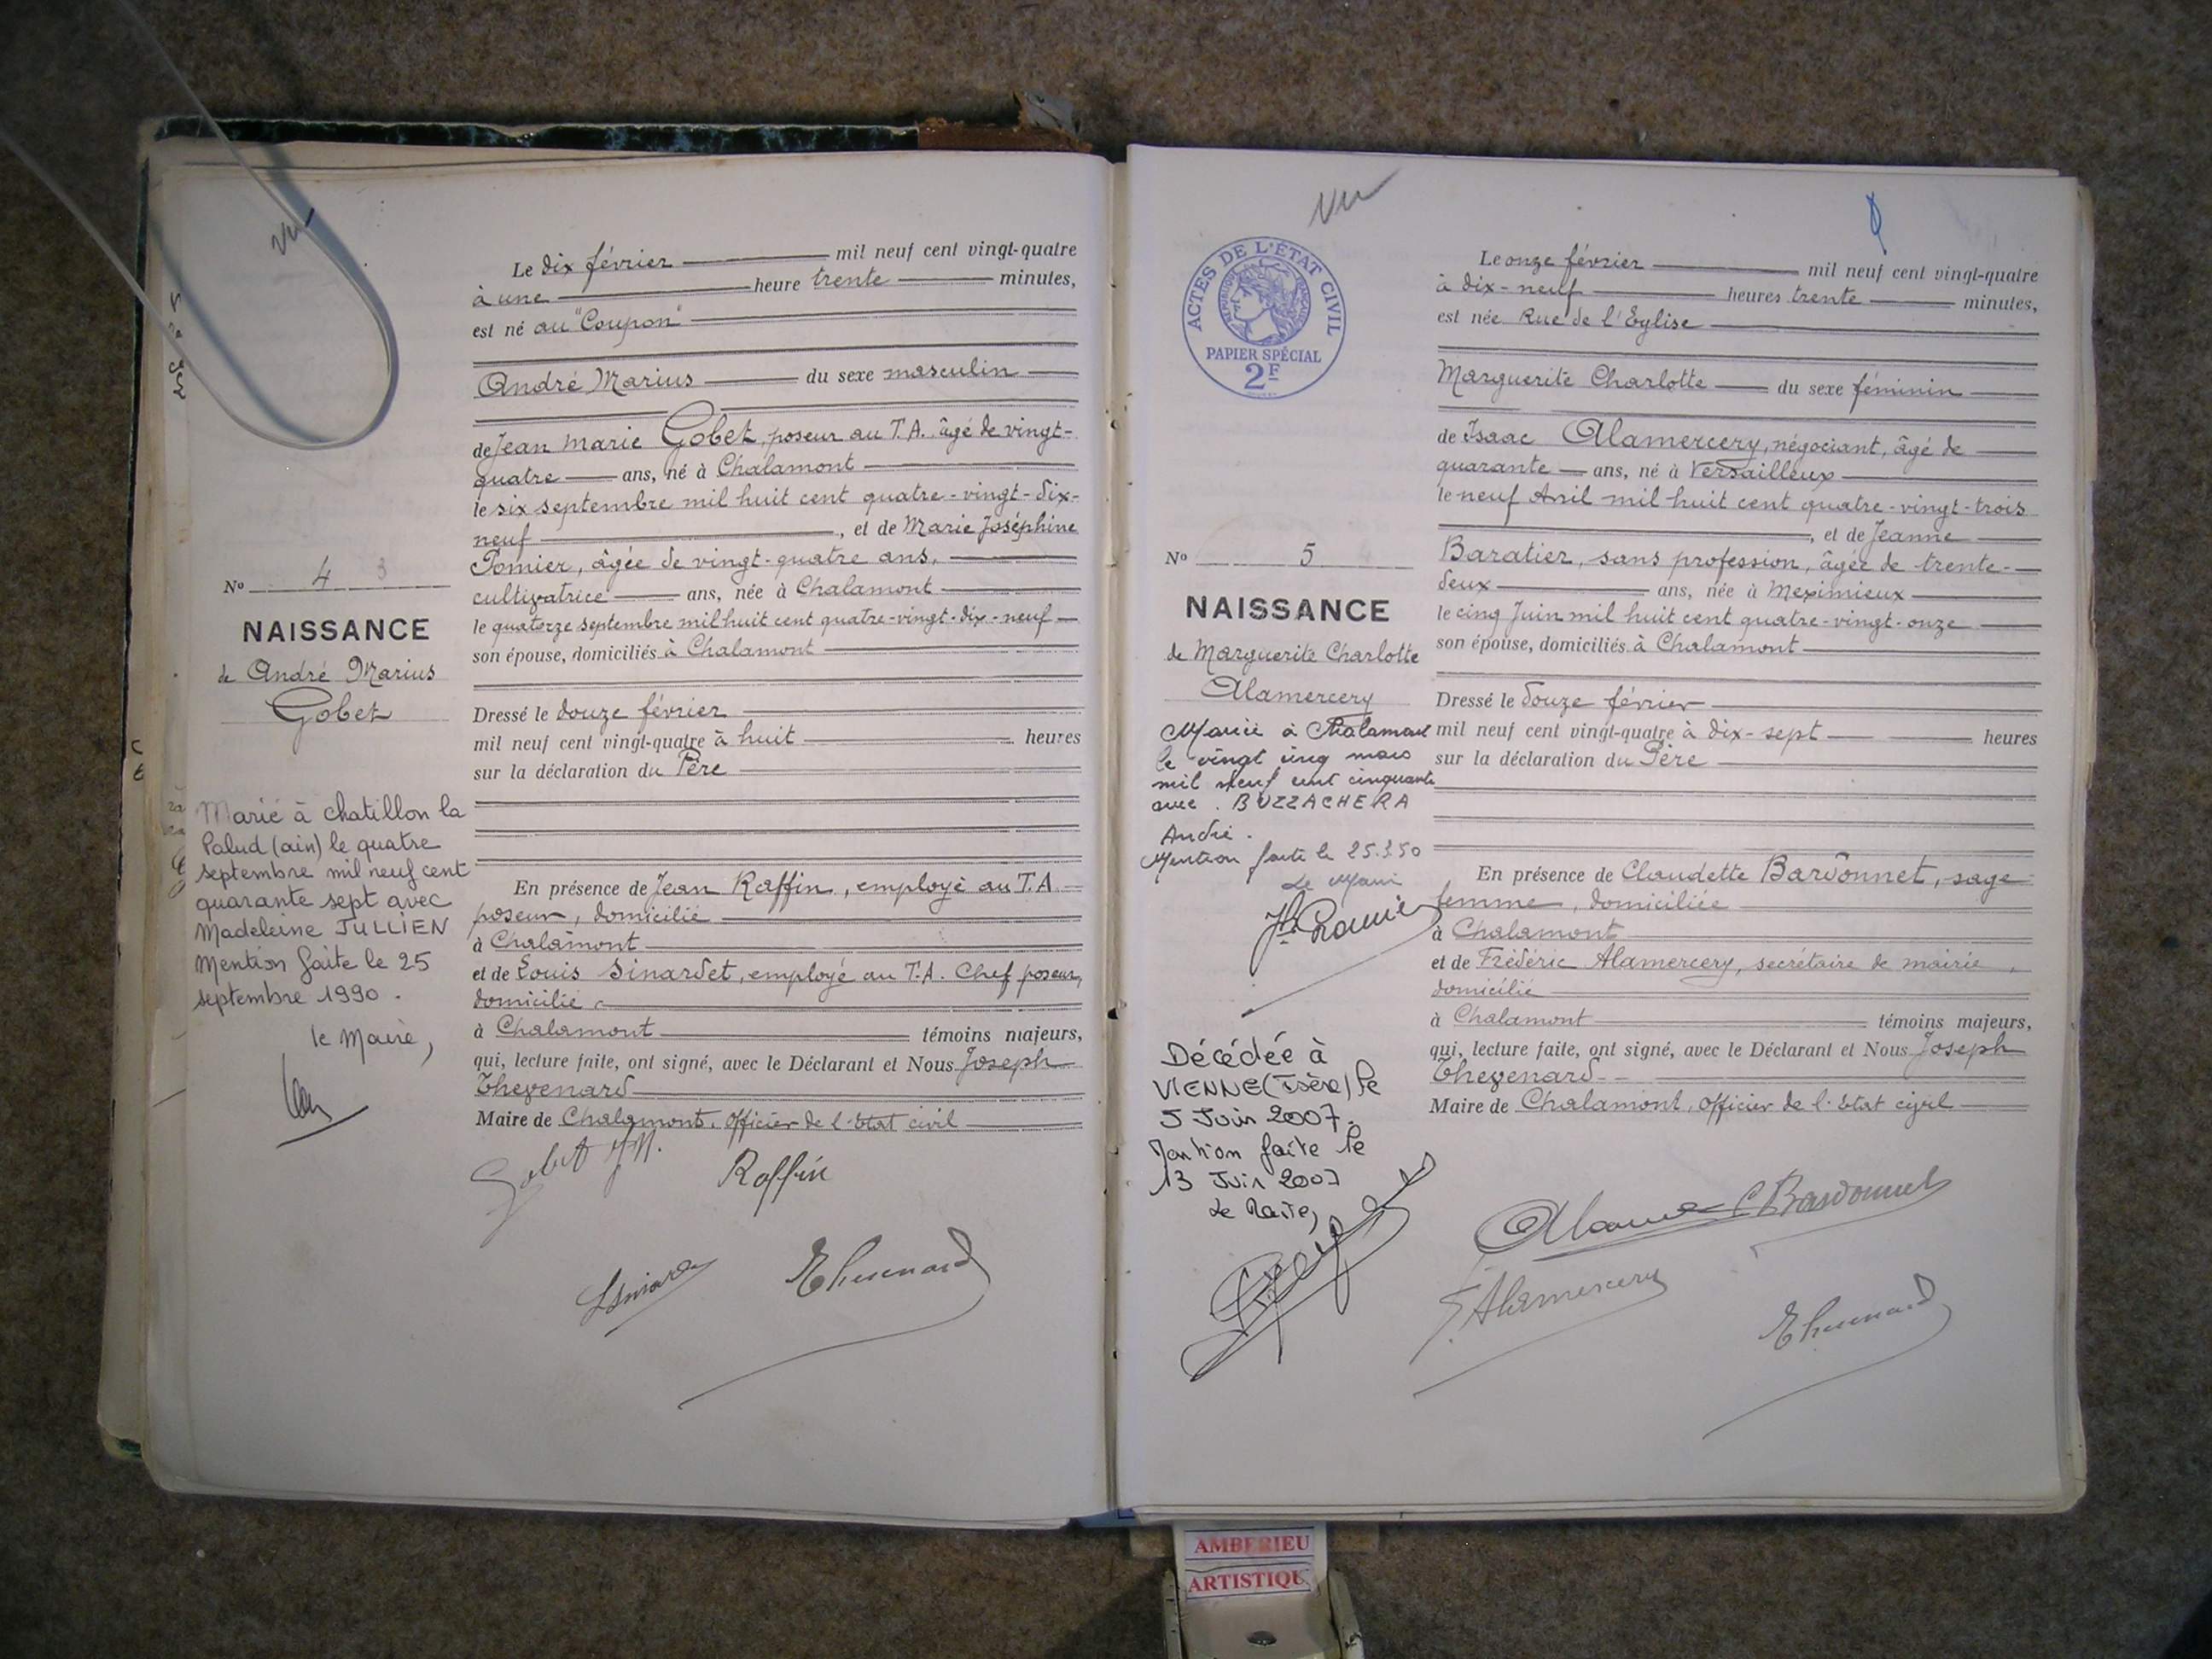 Vu
Le dix février mil neuf cent vingt-quatre
à une heure trente minutes,
est né au "Coupon"
André Marius du sexe masculin
de Jean Marie Gobet, poseur au T.A. âgé de vingt-
quatre ans, né à Chalamont
le six septembre mil huit cent quatre-vingt-dix-
neuf, et de Marie Joséphine
Pomier, âgée de vingt-quatre ans,
cultivatrice ans, née à Chalamont
le quatorze septembre mil huit cent quatre-vingt-dix-neuf
son épouse, domiciliés à Chalamont
Dressé le douze février
mil neuf cent vingt-quatre à huit heures
sur la déclaration du Père
En présence de Jean Raffin, employé au T.A
poseur, domicilié
à Chalamont
et de Louis Sinardet, employé au T.A. Chef poseur,
domicilié
à Chalamont témoins majeurs,
qui, lecture faite, ont signé, avec le Déclarant et Nous Joseph
Thevenard
Maire de Chalamont, Officier de l'Etat civil
Gobet JM.
Raffin
LSinardet
Thevenard
No 4
NAISSANCE
de André Marius
Gobet
Marié à chatillon la
Palud (ain) le quatre
septembre mil neuf cent
quarante sept avec
Madeleine JULLIEN
Mention faite le 25
septembre 1990.
le Maire,
Vu
ACTES DE L'ÉTAT CIVIL
RÉPUBLIQUE FRANÇAISE
PAPIER SPÉCIAL
2F
Le onze février mil neuf cent vingt-quatre
à dix-neuf heures trente minutes,
est née Rue de l'Eglise
Marguerite Charlotte du sexe féminin
de Isaac Alamercery, négociant, âgé de
quarante ans, né à Versailleux
le neuf Avril mil huit cent quatre-vingt-trois
, et de Jeanne
Baratier, sans profession, âgée de trente-
deux ans, née à Meximieux
le cinq Juin mil huit cent quatre-vingt-onze
son épouse, domiciliés à Chalamont
Dressé le douze février
mil neuf cent vingt-quatre à dix-sept heures
sur la déclaration du Père
En présence de Claudette Bardonnet, sage
femme, domiciliée
à Chalamont
et de Frédéric Alamercery, secrétaire de mairie,
domicilié
à Chalamont témoins majeurs,
qui, lecture faite, ont signé, avec le Déclarant et Nous Joseph
Thevenard
Maire de Chalamont, Officier de l'Etat civil
C Bardonnet
F. Alamercery
Thevenard
No 5
NAISSANCE
de Marguerite Charlotte
Alamercery
Mariée à Chalamont
le vingt cinq mars
mil neuf cent cinquante
avec BUZZACHERA
André.
Mention faite le 25.3.50
Le Maire
Décédée à
VIENNE (Isère) le
5 Juin 2007.
Mention faite le
13 Juin 2007
Le Maire,
AMBERIEU
ARTISTIQUE